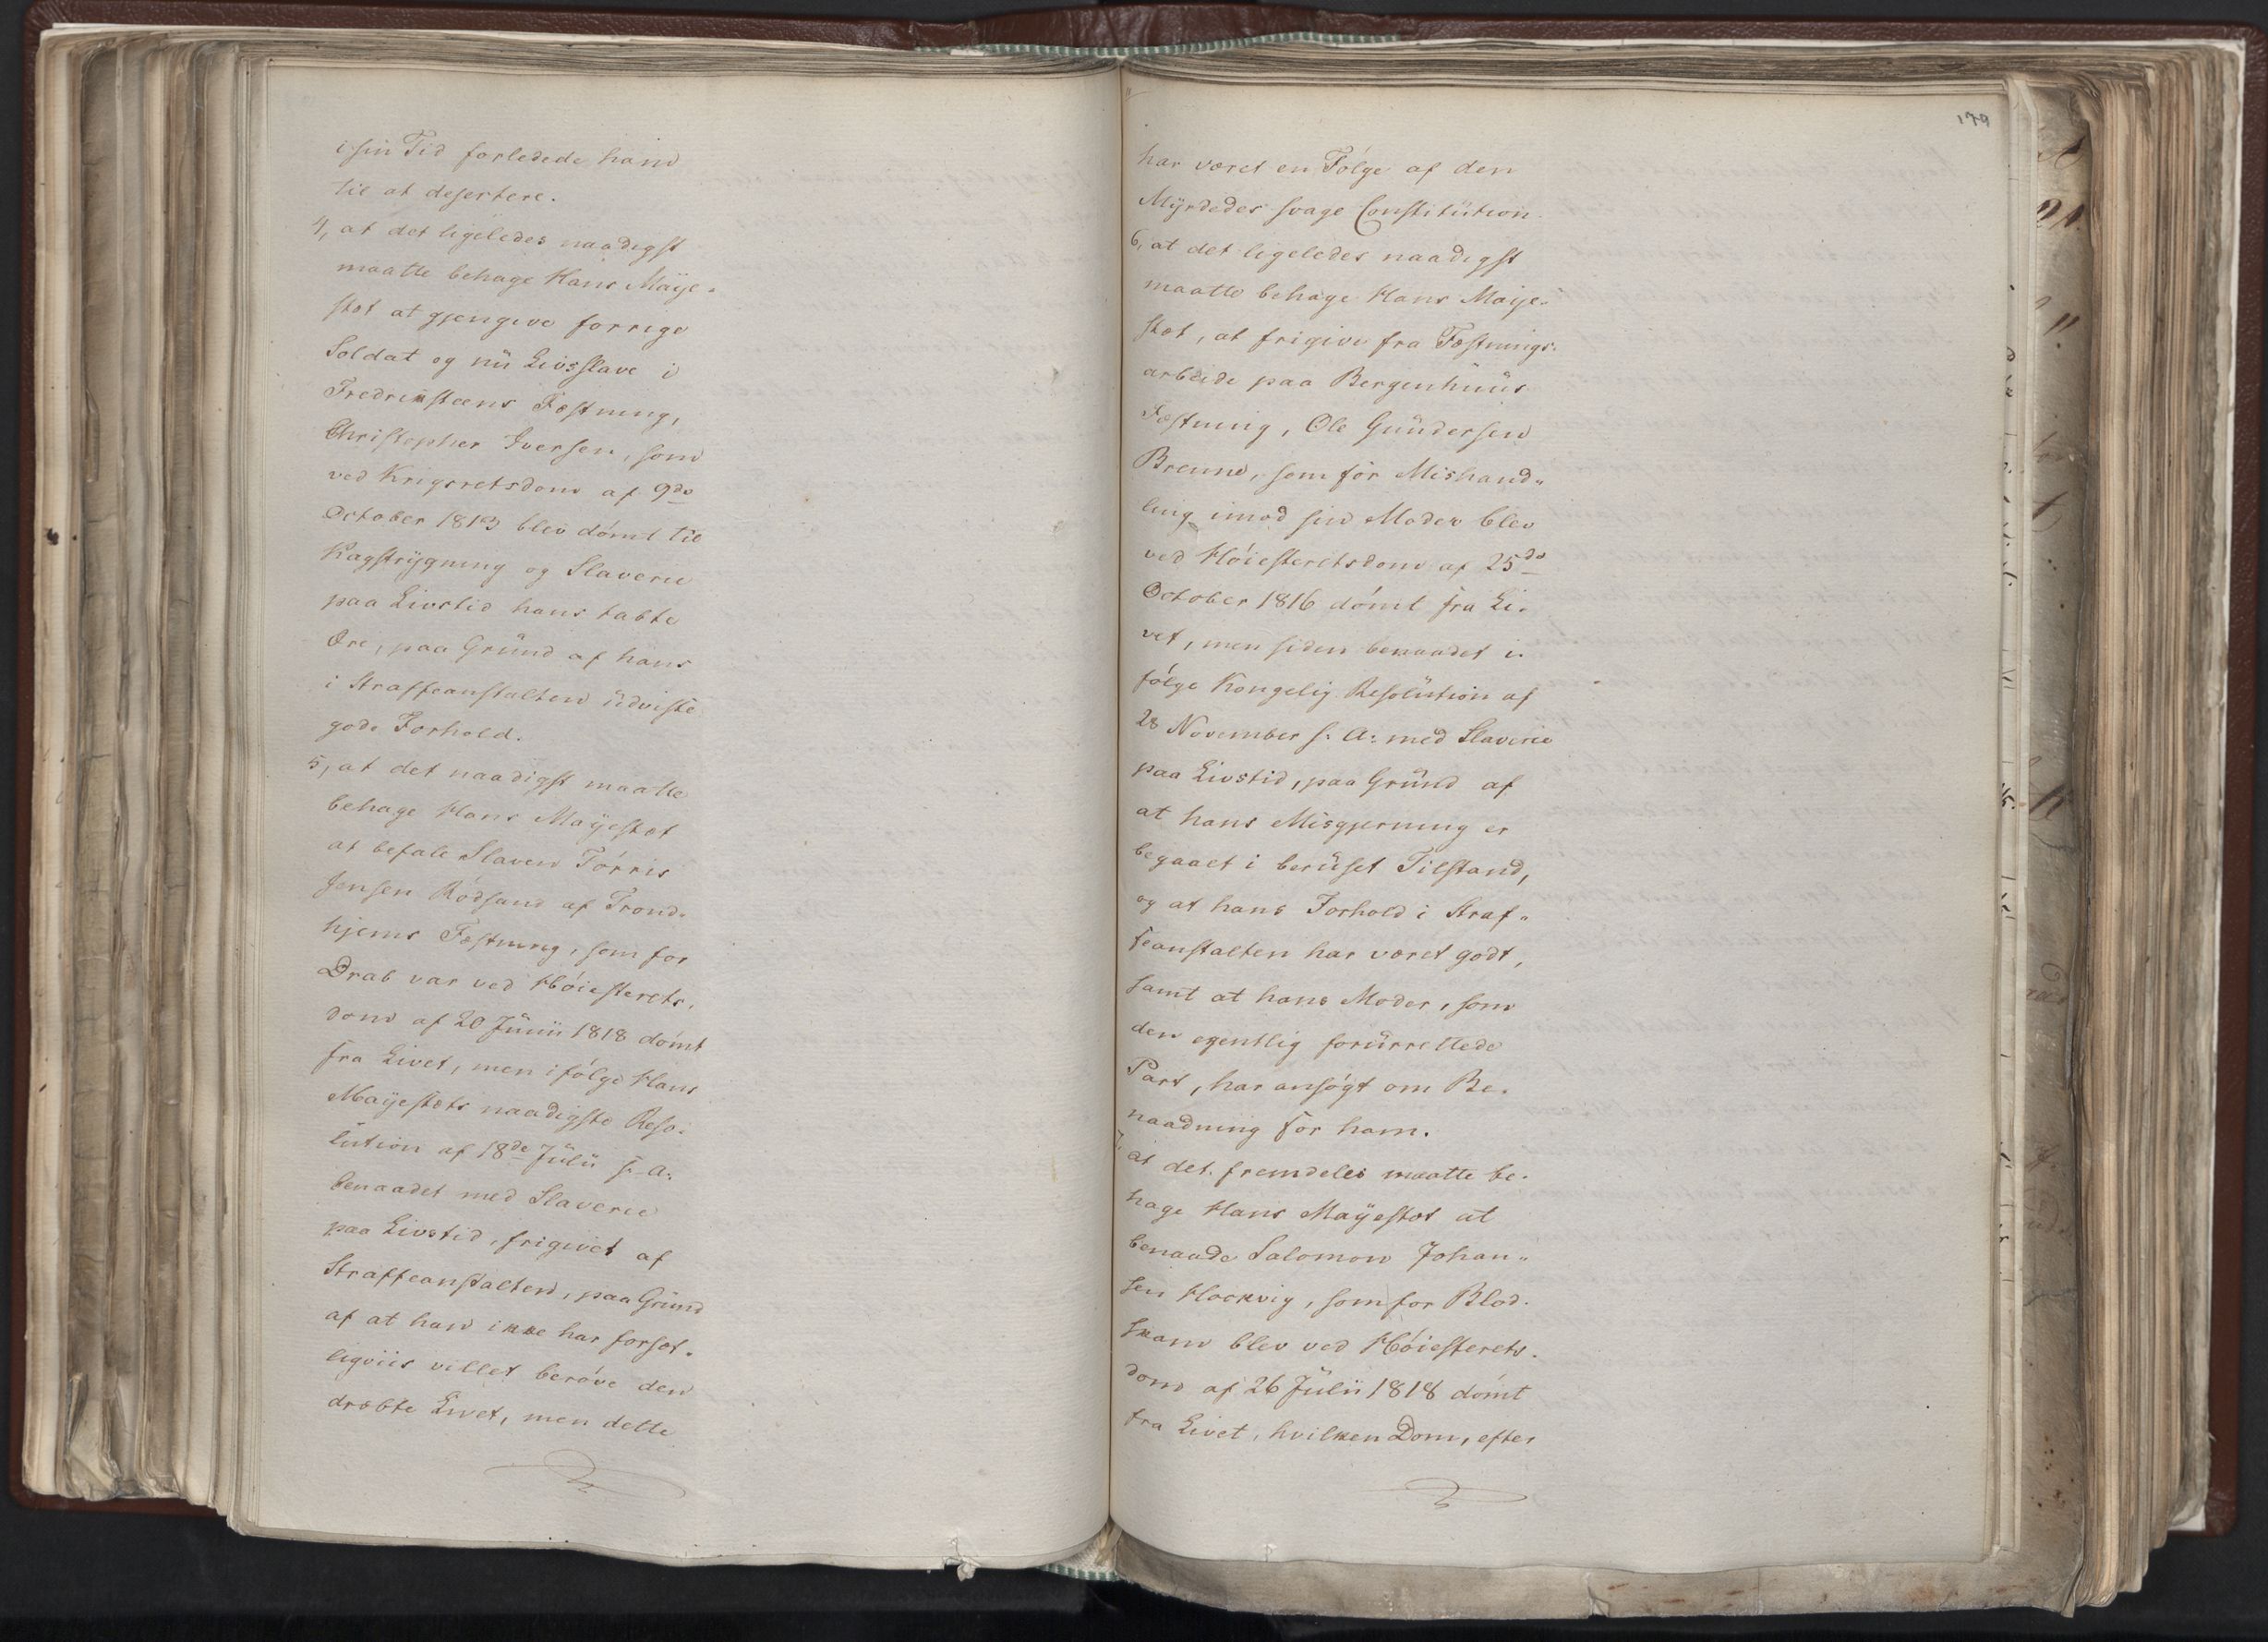 i sin Tid forledede ham
til at desertere.
4, at det ligeledes naadigst
maatte behage Hans Maje-
stæt at gjengive forrige
Soldat og nu Livsslave i
Fredriksteens Fæstning,
Christopher Iversen, som
ved Krigsretsdom af 9de
October 1813 blev dömt til
Kagstrygning og Slaverie
paa Livstid hans tabte
Ære, paa Grund af hans
i Straffeanstalten udviste
gode Forhold.
5, at det naadigst maatte
behage Hans Majestæt
at befale Slaven Törris
Jensen Rödsand af Trond-
hjems Fæstning, som for
Drab var ved Höiesterets-
dom af 20 Junii 1818 dömt
fra Livet, men ifölge Hans
Majestæts naadigste Reso-
lution af 18de Julii s. A.
benaadet med Slaverie
paa Livstid, frigivet af
Straffeanstalten, paa Grund
af at han ikke har forsæt-
ligviis villet beröve den
dræbte Livet, men dette
179
har været en Fölge af den
Myrdedes svage Constitution.
6, at det ligeledes naadigst
maatte behage Hans Maje-
stæt, at frigive fra Fæstnings-
arbeide paa Bergenhuus
Fæstning, Ole Gundersen
Breune, som for Mishand-
ling imod sin Moder blev
ved Höiesteretsdom af 25de
October 1816 dömt fra Li-
vet, men siden benaadet i-
fölge Kongelig Resolution af
28 November s: A: med Slaverie
paa Livstid, paa Grund af
at hans Misgjerning er
begaaet i beruset Tilstand,
og at hans Forhold i Straf-
feanstalten har været godt,
samt at hans Moder, som
den egentlig forurrettede
Part, har ansögt om Be-
naadning for ham.
7, at det fremdeles maatte be-
hage Hans Majestæt at
benaade Salomon Johan-
sen Hockvig, som for Blod-
skam blev ved Höiesterets-
dom af 26 Julii 1818 dömt
fra Livet, hvilken Dom, efter